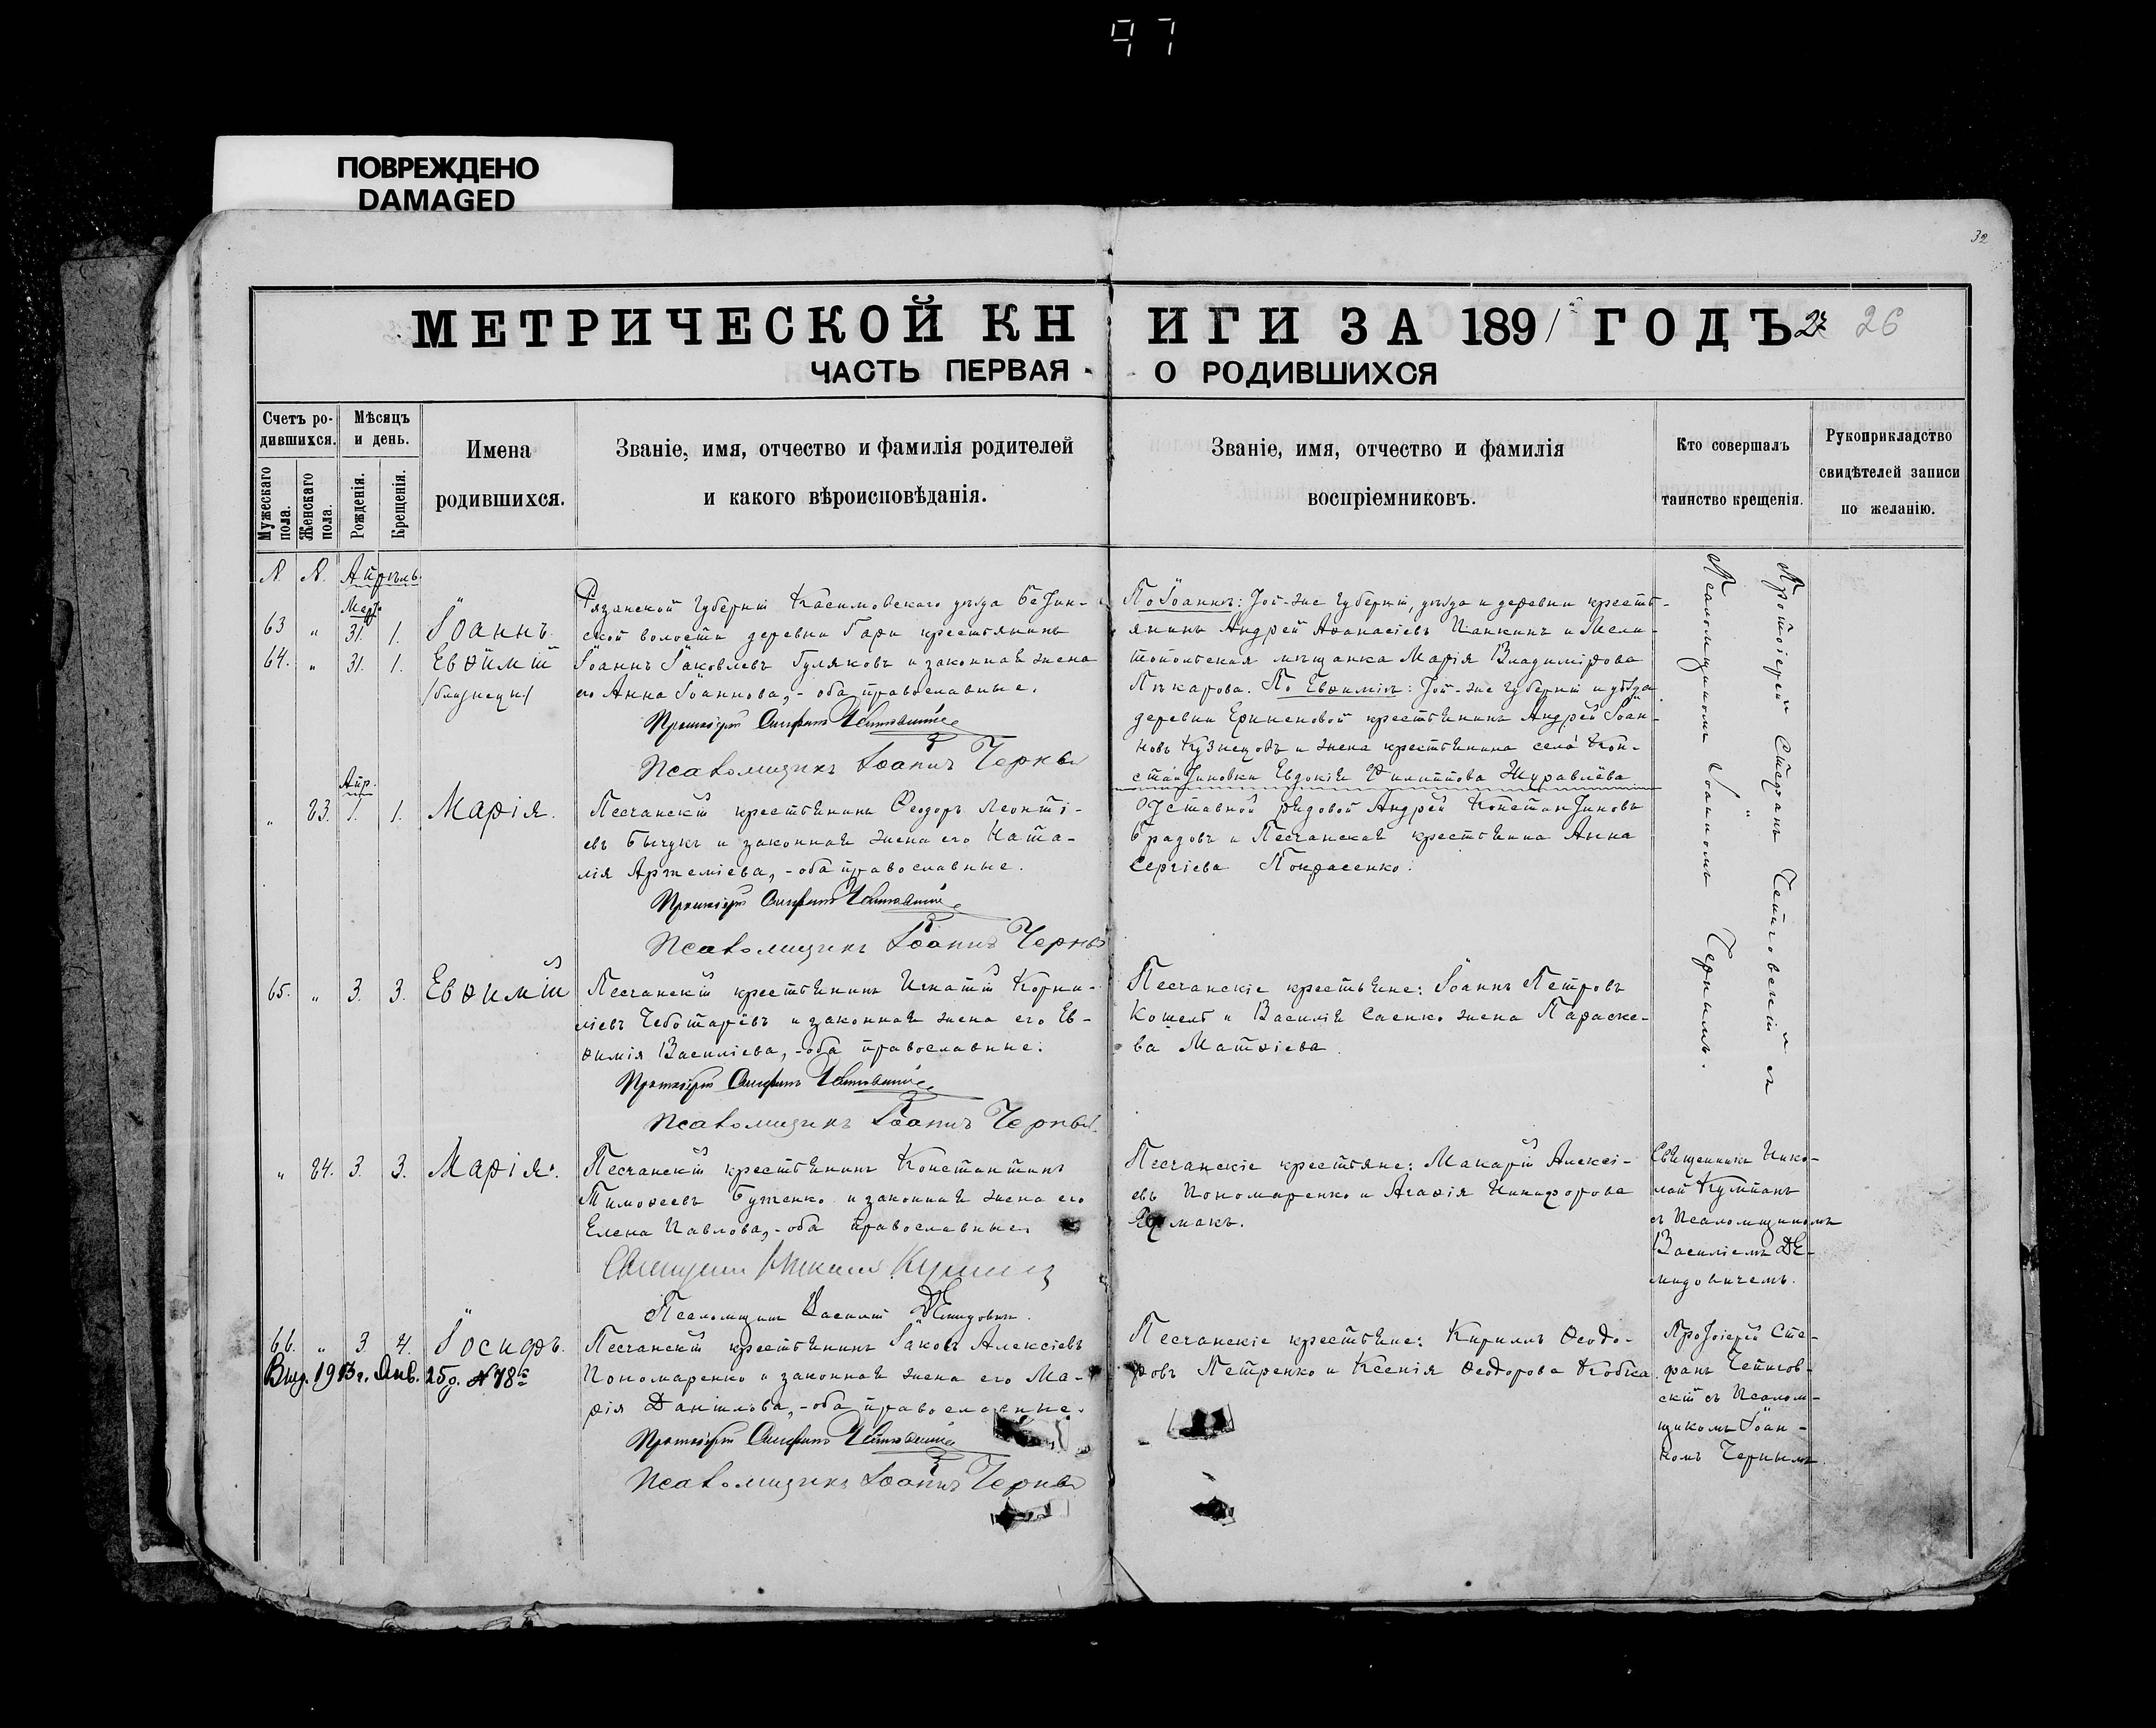 97
ПОВРЕЖДЕНО
DAMAGED
32
МЕТРИЧЕСКОЙ КНИГИ ЗА 1891 ГОДЪ 26
ЧАСТЬ ПЕРВАЯ О РОДИВШИХСЯ
Счетъ ро-
дившихся.
Мужескаго пола.
Женскаго пола.
Мѣсяцъ
и день.
Рожденія.
Крещенія.
Имена
родившихся.
Званіе, имя, отчество и фамилія родителей
и какого вѣроисповѣданія.
Званіе, имя, отчество и фамилія
воспріемниковъ.
Кто совершалъ
таинство крещенія.
Рукоприкладство
свидѣтелей записи
по желанію.
№. №. Апрѣль.
Март.
63 " 31. 1. Іоаннъ.
64. " 31. 1. Евѳимій
/близнецы/
Рязанской губерніи Касимовскаго уѣзда Бетин-
ской волости деревни Гари крестьянинъ
Іоаннъ Іаковлевъ Гуляковъ и законная жена
его Анна Іоаннова, - оба православные.
Протоіерей Стефанъ
Псаломщикъ Іоаннъ Черный
По Іоаннѣ: той-же губерніи, уѣзда и деревни кресть-
янинъ Андрей Аѳанасіевъ Панкинъ и Мели-
топольская мѣщанка Марія Владимірова
Пѣкарова. По Евѳиміѣ: той-же губерніи и уѣзда
деревни Ериненовой крестьянинъ Андрей Іоан-
новъ Кузнецовъ и жена крестьянина села Кон-
стантиновки Евдокія Филиппова Журавлёва
Протоіерей Стефанъ Чепиговскій съ
Псаломщикомъ Іоанномъ Чернымъ.
Апр.
" 23. 1. 1. Марія.
Песчанскій крестьянинъ Ѳеодоръ Леонті-
евъ Бычукъ и законная жена его Ната-
лія Артеміева, - оба православные.
Протоіерей Стефанъ
Псаломщикъ Іоаннъ Черный
Отставной рядовой Андрей Константиновъ
Брадовъ и Песчанская крестьянка Анна
Сергіева Покрасенко.
65. " 3. 3. Евѳимій
Песчанскій крестьянинъ Игнатій Корни-
ліевъ Чеботарёвъ и законная жена его Ев-
ѳимія Василіева, - оба православные.
Протоіерей Стефанъ
Псаломщикъ Іоаннъ Черный.
Песчанскіе крестьяне: Іоаннъ Петровъ
Кошель и Василія Саенко жена Параске-
ва Матѳіева.
" 24. 3. 3. Марія.
Песчанскій крестьянинъ Константинъ
Тимоѳеевъ Бутенко и законная жена его
Елена Павлова, - оба православные.
Священникъ Николай
Псаломщикъ Василій Демидовичъ.
Песчанскіе крестьяне: Макарій Алексі-
евъ Пономаренко и Агаѳія Никифорова
Священникъ Нико-
лай Кумпанъ
съ Псаломщикомъ
Василіемъ Де-
мидовичемъ.
66. " 3. 4. Іосифъ.
Выд. 1913 г. Янв. 25 д. № 78
Песчанскій крестьянинъ Іаковъ Алексіевъ
Пономаренко и законная жена его Ма-
рія Даніилова, - оба православные.
Протоіерей Стефанъ
Псаломщикъ Іоаннъ Черный
Песчанскіе крестьяне: Кириллъ Ѳеодо-
ровъ Петренко и Ксенія Ѳеодорова Кобка.
Протоіерей Сте-
фанъ Чепигов-
скій съ Псалом-
щикомъ Іоан-
номъ Чернымъ.